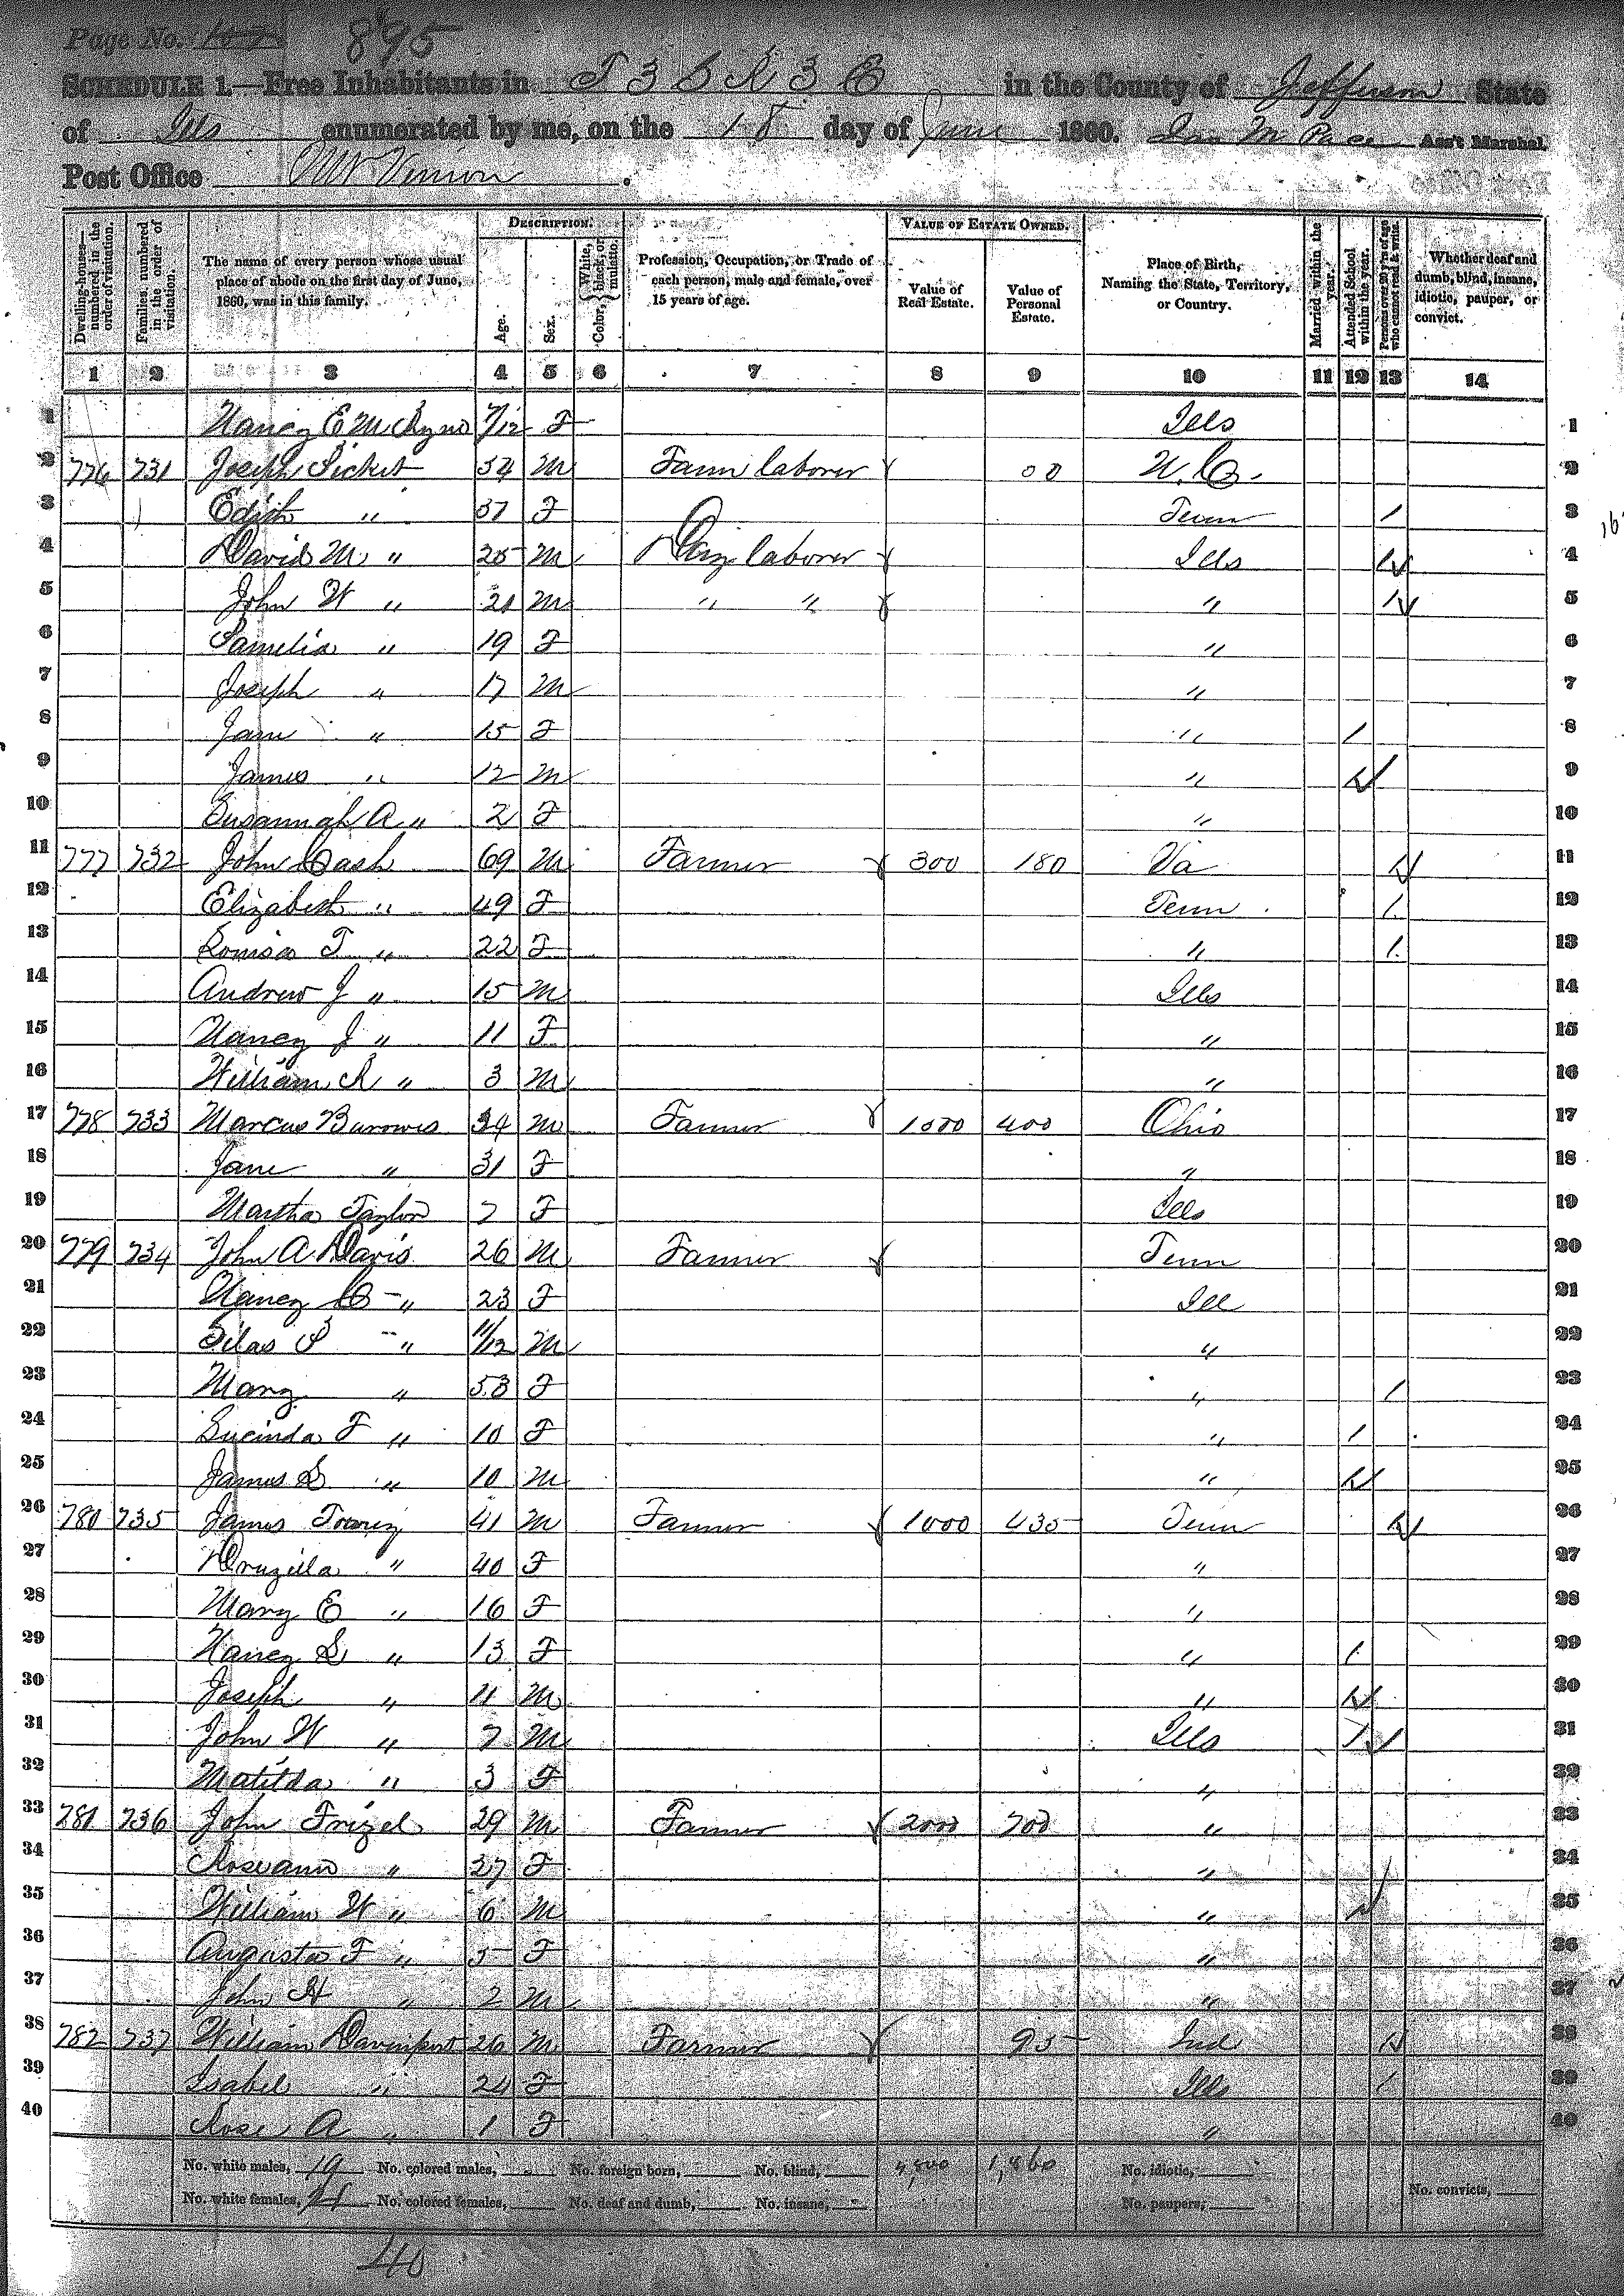 Page No. 107 895
SCHEDULE 1.—Free Inhabitants in T 3 S R 3 E in the County of Jefferson State
of Ills enumerated by me, on the 18 day of June 1860. M Pace Ass't Marshal.
Post Office Mt Vernon.
Dwelling-houses—numbered in the order of visitation. Families numbered in the order of visitation. The name of every person whose usual place of abode on the first day of June, 1860, was in this family. DESCRIPTION. Age. Sex. Color, White, black, or mulatto. Profession, Occupation, or Trade of each person, male and female, over 15 years of age. VALUE OF ESTATE OWNED. Value of Real Estate. Value of Personal Estate. Place of Birth, Naming the State, Territory, or Country. Married within the year. Attended School within the year. Persons over 20 y'rs of age who cannot read & write. Whether deaf and dumb, blind, insane, idiotic, pauper, or convict.
1 2 3 4 5 6 7 8 9 10 11 12 13 14
1 Nancy E 7/12 F Ills 1
2 776 731 Joseph 54 M Farm laborer N.C. 2
3 Edith " 37 F Tenn / 3
4 David M " 25 M Day laborer Ills / 4
5 John W " 21 M " " " / 5
6 Pamelia " 19 F " 6
7 Joseph " 17 M " 7
8 Jane " 15 F " / 8
9 James " 12 M " / 9
10 Susannah A " 2 F " 10
11 777 732 John Cash 69 M Farmer 300 180 Va / 11
12 Elizabeth " 49 F Tenn / 12
13 Louisa T " 22 F " / 13
14 Andrew J " 15 M Ills 14
15 Nancy J " 11 F " 15
16 William R " 3 M " 16
17 778 733 Marcus Burrows 34 M Farmer 1000 400 Ohio 17
18 Jane " 31 F " 18
19 Martha Taylor 7 F Ills 19
20 779 734 John A Davis 26 M Farmer Tenn 20
21 Nancy C " 23 F Ill 21
22 Silas S " 11/12 M " 22
23 Mary " 53 F " / 23
24 Lucinda F " 10 F " / 24
25 James S " 10 M " / 25
26 780 735 James 41 M Farmer 1000 435 Tenn / 26
27 Druzilla " 40 F " 27
28 Mary E " 16 F " 28
29 Nancy S " 13 F " / 29
30 Joseph " 11 M " / 30
31 John W " 7 M Ills / 31
32 Matilda " 3 F " 32
33 781 736 John Frizel 29 M Farmer 2000 700 " 33
34 Roseann " 27 F " 34
35 William W " 6 M " / 35
36 Augusta F " 5 F " 36
37 John H " 2 M " 37
38 782 737 William Davenport 26 M Farmer 95 Ind / 38
39 Isabel " 24 F Ills / 39
40 Rose A " 1 F " 40
No. white males, 19 No. colored males, No. foreign born, No. blind, 4,300 1,860 No. idiotic,
No. white females, 21 No. colored females, No. deaf and dumb, No. insane, No. paupers, No. convicts,
40